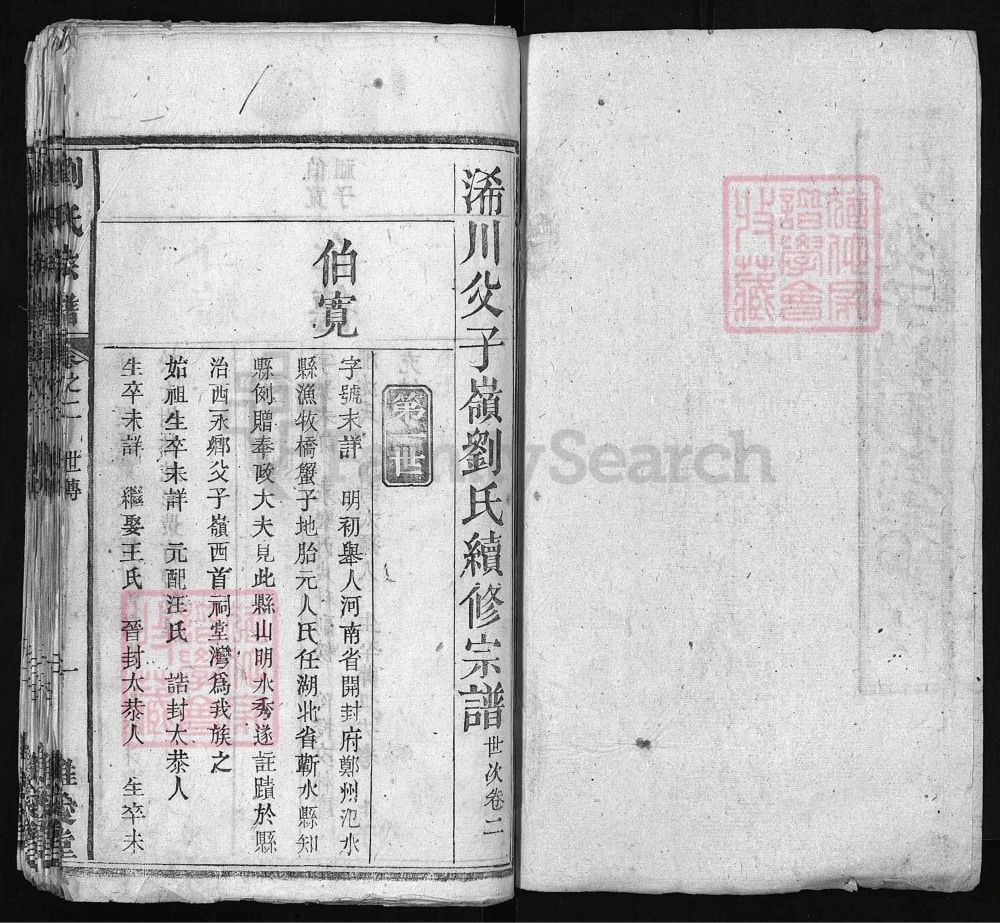 浠川父子嶺劉氏續修宗譜 世次卷二
第一世
伯寬
字號未詳 明初舉人河南省開封府鄭州氾水
縣漁牧橋蟹子地胎元人氏任湖北省蘄水縣知
縣例贈奉政大夫見此縣山明水秀遂註蹟於縣
治西永鄉父子嶺西首祠堂灣爲我族之
始祖生卒未詳 元配汪氏 誥封太恭人
生卒未詳 繼娶王氏 晉封太恭人 生卒未
劉氏宗譜 卷之二 世傳 一
譜學會
FamilySearch